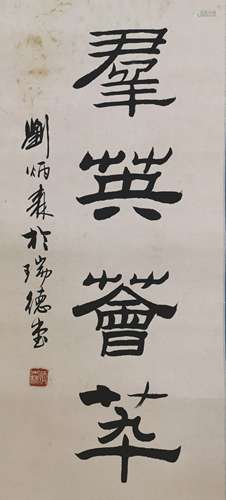 羣英薈萃
劉炳森於瑞德堂